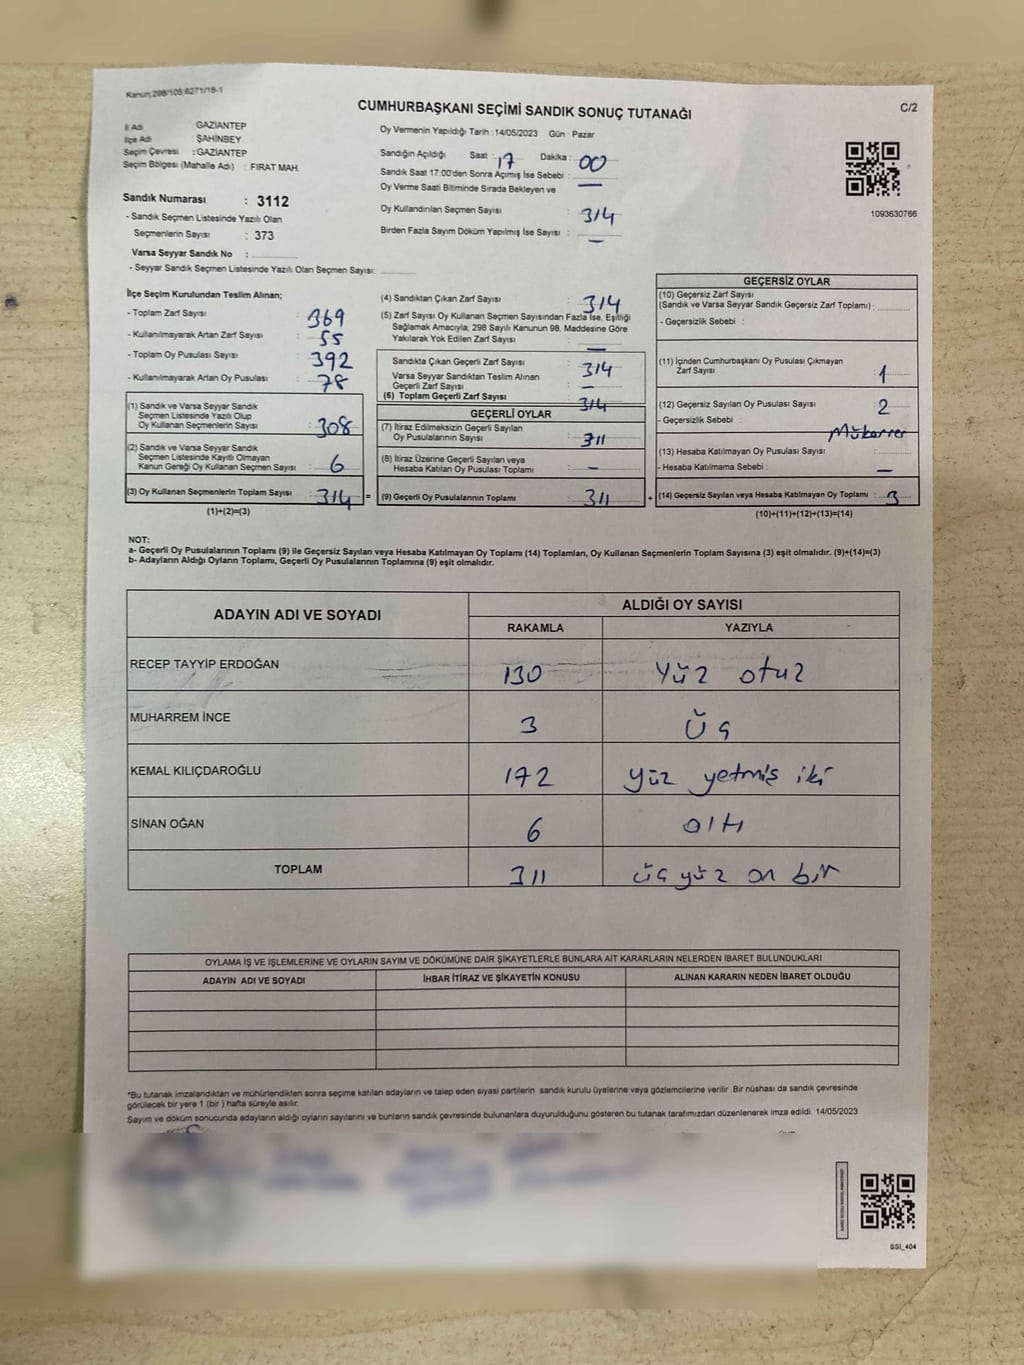 Kanun:298/105;6271/18-1
CUMHURBAŞKANI SEÇİMİ SANDIK SONUÇ TUTANAĞI
C/2
İl Adı : GAZİANTEP
İlçe Adı : ŞAHİNBEY
Seçim Çevresi : GAZİANTEP
Seçim Bölgesi (Mahalle Adı) : FIRAT MAH.
Oy Vermenin Yapıldığı Tarih : 14/05/2023 Gün : Pazar
Sandığın Açıldığı Saat : 17 Dakika : 00
Sandık Saat 17:00'den Sonra Açımış İse Sebebi : —
Oy Verme Saati Bitiminde Sırada Bekleyen ve
Oy Kullandırılan Seçmen Sayısı : 314
Birden Fazla Sayım Döküm Yapılmış İse Sayısı : —
1093630766
Sandık Numarası : 3112
- Sandık Seçmen Listesinde Yazılı Olan
Seçmenlerin Sayısı : 373
Varsa Seyyar Sandık No :
- Seyyar Sandık Seçmen Listesinde Yazılı Olan Seçmen Sayısı:
İlçe Seçim Kurulundan Teslim Alınan;
- Toplam Zarf Sayısı : 369
- Kullanılmayarak Artan Zarf Sayısı : 55
- Toplam Oy Pusulası Sayısı : 392
- Kullanılmayarak Artan Oy Pusulası : 78
(1) Sandık ve Varsa Seyyar Sandık
Seçmen Listesinde Yazılı Olup
Oy Kullanan Seçmenlerin Sayısı : 308
(2) Sandık ve Varsa Seyyar Sandık
Seçmen Listesinde Kayıtlı Olmayan
Kanun Gereği Oy Kullanan Seçmen Sayısı : 6
(3) Oy Kullanan Seçmenlerin Toplam Sayısı : 314 =
(1)+(2)=(3)
(4) Sandıktan Çıkan Zarf Sayısı : 314
(5) Zarf Sayısı Oy Kullanan Seçmen Sayısından Fazla İse, Eşitliği
Sağlamak Amacıyla; 298 Sayılı Kanunun 98. Maddesine Göre
Yakılarak Yok Edilen Zarf Sayısı : —
Sandıkta Çıkan Geçerli Zarf Sayısı : 314
Varsa Seyyar Sandıktan Teslim Alınan
Geçerli Zarf Sayısı : —
(6) Toplam Geçerli Zarf Sayısı : 314
GEÇERLİ OYLAR
(7) İtiraz Edilmeksizin Geçerli Sayılan
Oy Pusulalarının Sayısı : 311
(8) İtiraz Üzerine Geçerli Sayılan veya
Hesaba Katılan Oy Pusulası Toplamı : —
(9) Geçerli Oy Pusulalarının Toplamı : 311 +
GEÇERSİZ OYLAR
(10) Geçersiz Zarf Sayısı
(Sandık ve Varsa Seyyar Sandık Geçersiz Zarf Toplamı) :
- Geçersizlik Sebebi :
(11) İçinden Cumhurbaşkanı Oy Pusulası Çıkmayan
Zarf Sayısı : 1
(12) Geçersiz Sayılan Oy Pusulası Sayısı : 2
- Geçersizlik Sebebi : Mükerrer
(13) Hesaba Katılmayan Oy Pusulası Sayısı :
- Hesaba Katılmama Sebebi : —
(14) Geçersiz Sayılan veya Hesaba Katılmayan Oy Toplamı : 3
(10)+(11)+(12)+(13)=(14)
NOT:
a- Geçerli Oy Pusulalarının Toplamı (9) ile Geçersiz Sayılan veya Hesaba Katılmayan Oy Toplamı (14) Toplamları, Oy Kullanan Seçmenlerin Toplam Sayısına (3) eşit olmalıdır. (9)+(14)=(3)
b- Adayların Aldığı Oyların Toplamı, Geçerli Oy Pusulalarının Toplamına (9) eşit olmalıdır.
ADAYIN ADI VE SOYADI ALDIĞI OY SAYISI
RAKAMLA YAZIYLA
RECEP TAYYİP ERDOĞAN 130 Yüz otuz
MUHARREM İNCE 3 Üç
KEMAL KILIÇDAROĞLU 172 Yüz yetmiş iki
SİNAN OĞAN 6 altı
TOPLAM 311 üç yüz on bir
OYLAMA İŞ VE İŞLEMLERİNE VE OYLARIN SAYIM VE DÖKÜMÜNE DAİR ŞİKAYETLERLE BUNLARA AİT KARARLARIN NELERDEN İBARET BULUNDUKLARI
ADAYIN ADI VE SOYADI İHBAR İTİRAZ VE ŞİKAYETİN KONUSU ALINAN KARARIN NEDEN İBARET OLDUĞU
*Bu tutanak imzalandıktan ve mühürlendikten sonra seçime katılan adayların ve talep eden siyasi partilerin sandık kurulu üyelerine veya gözlemcilerine verilir .Bir nüshası da sandık çevresinde
görülecek bir yere 1 (bir ) hafta süreyle asılır.
Sayım ve döküm sonucunda adayların aldığı oyların sayılarını ve bunların sandık çevresinde bulunanlara duyurulduğunu gösteren bu tutanak tarafımızdan düzenlenerek imza edildi. 14/05/2023
GSI_404